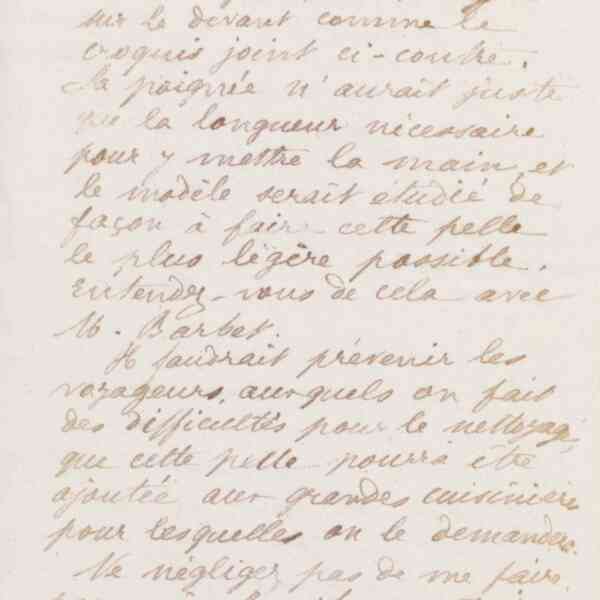 sur le devant comme le
croquis joint ci-contre.
La poignée n'aurait juste
que la longueur nécessaire
pour y mettre la main, et
le modèle serait étudié de
façon à faire cette pelle
le plus légère possible.
Entendez-vous de cela avec
M. Barbet.
Il faudrait prévenir les
voyageurs, auxquels on fait
des difficultés pour le nettoyage,
que cette pelle pourra être
ajoutée aux grandes cuisinières
pour lesquelles on le demandera.
Ne négligez pas de me faire